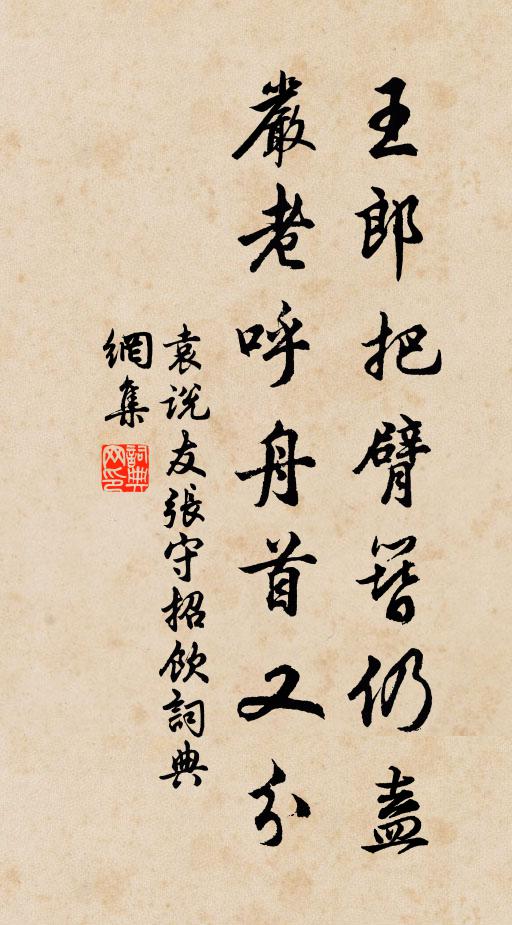 王郎把臂簪仍盍
嚴老呼舟首又分
袁说友張守招飲詞典
網集
詞典网印